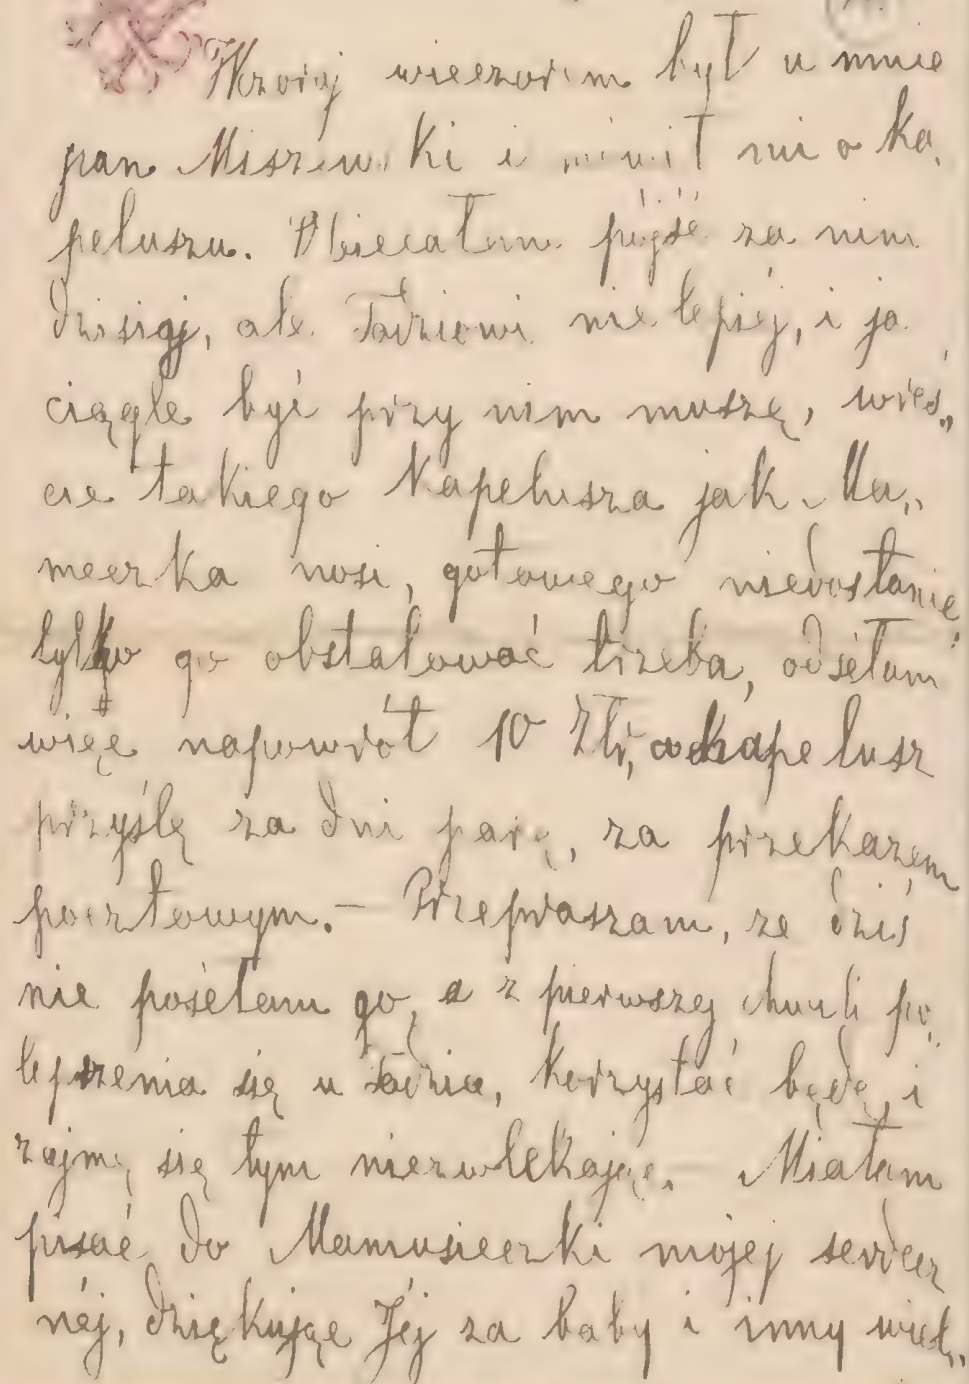 Wczoraj wieczorem był u mnie
pan Miszewski i mówił mi o ka„
peluszu. Obiecałam pójść za nim
dzisiaj, ale Tadziowi nie lepiéj, i ja
ciągle być przy nim muszę, wres„
cie takiego kapelusza jak Ma„
meczka nosi, gotowego niedostanie
tylko go obstalować trzeba, odsełam
więc napowrót 10 Złr, a kapelusz
przyślę za dni parę, za przekazem
pocztowym. – Przepraszam, ze dziś
nie posełam go, a z pierwszej chwili po„
lepszenia się u Tadzia, korzystać będę i
zajmę się tym niezwlekając. Miałam
pisać do Mamusieczki mojej serdecz
néj, dziękując Jéj za baby i inny wiel„